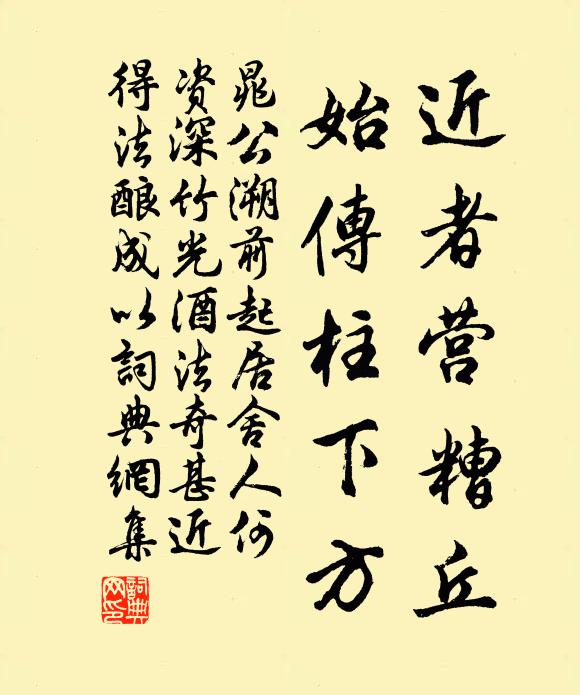 近者营糟丘
始傳柱下方
晁公溯前起居舍人何
资深竹光酒法奇甚近
得法酿成以詞典網集